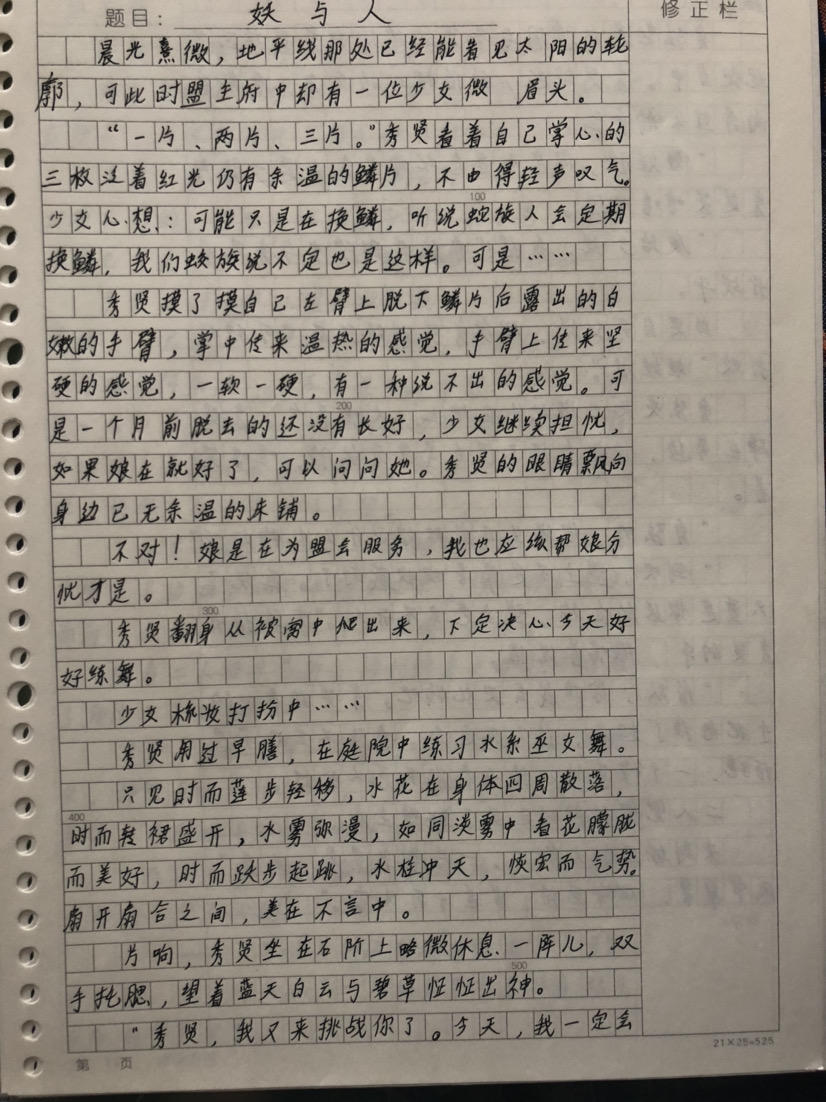 题目： 妖与人
修正栏
晨光熹微，地平线那处已经能看见太阳的轮
廓，可此时盟主府中却有一位少女微 眉头。
“一片、两片、三片。”秀贤看着自己掌心的
三枚泛着红光仍有余温的鳞片，不由得轻声叹气。
100
少女心想：可能只是在换鳞，听说蛇族人会定期
换鳞，我们蛟族说不定也是这样。可是……
秀贤摸了摸自己左臂上脱下鳞片后露出的白
嫩的手臂，掌中传来温热的感觉，手臂上传来坚
硬的感觉，一软一硬，有一种说不出的感觉。可
200
是一个月前脱去的还没有长好，少女继续担忧，
如果娘在就好了，可以问问她。秀贤的眼睛飘向
身边已无余温的床铺。
不对！娘是在为盟会服务，我也应该帮娘分
忧才是。
300
秀贤翻身从被窝中爬出来，下定决心今天好
好练舞。
少女梳妆打扮中……
秀贤用过早膳，在庭院中练习水系巫女舞。
只见时而莲步轻移，水花在身体四周散落，
400
时而转裙盛开，水雾弥漫，如同淡雾中看花朦胧
而美好，时而跃步起跳，水柱冲天，恢宏而气势。
扇开扇合之间，美在不言中。
片响，秀贤坐在石阶上略微休息一阵儿，双
500
手托腮，望着蓝天白云与碧草怔怔出神。
“秀贤，我又来挑战你了。今天，我一定会
21×25=525
第 页